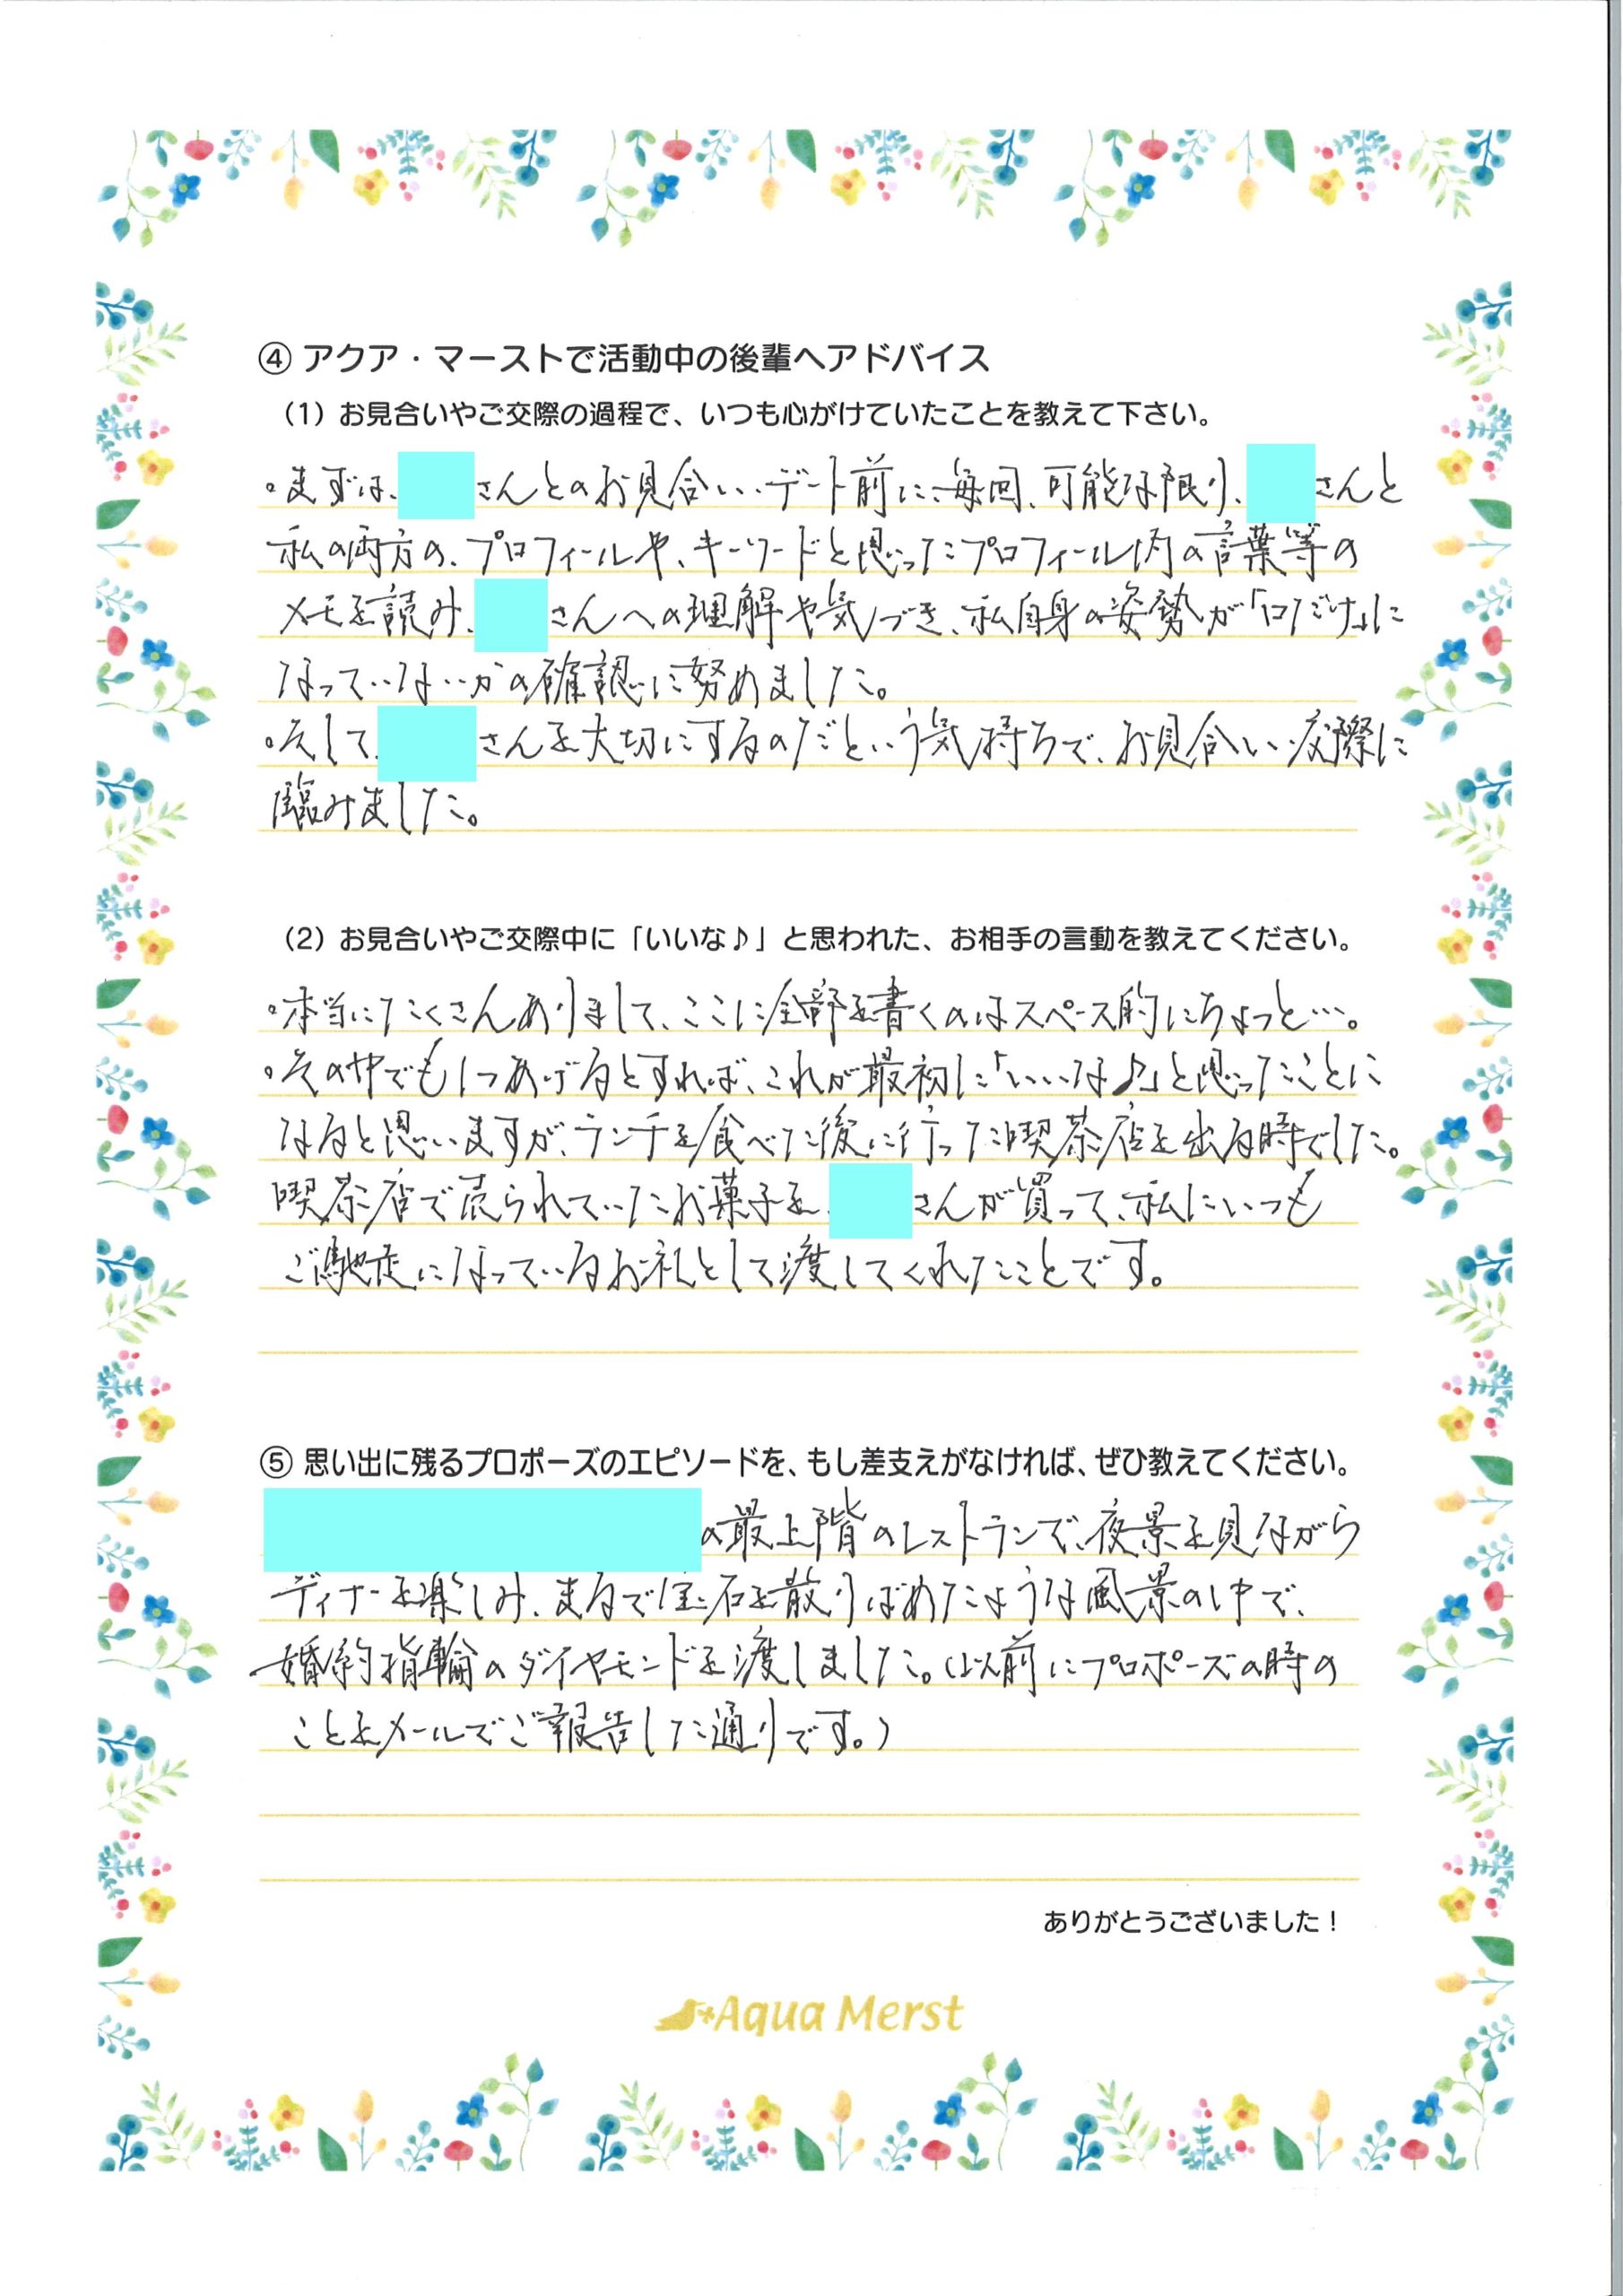 ④ アクア・マーストで活動中の後輩へアドバイス
（1）お見合いやご交際の過程で、いつも心がけていたことを教えて下さい。
・まずは、 さんとのお見合い、デート前に、毎回、可能な限り、 さんと
私の両方の、プロフィールや、キーワードと思ったプロフィール内の言葉等の
メモを読み、 さんへの理解や気づき、私自身の姿勢が「口だけ」に
なっていないかの確認に努めました。
・そして、 さんを大切にするのだという気持ちで、お見合い、交際に
臨みました。
（2）お見合いやご交際中に「いいな♪」と思われた、お相手の言動を教えてください。
・本当にたくさんありまして、ここに全部を書くのはスペース的にちょっと…。
・その中でも1つあげるとすれば、これが最初に「いいな♪」と思ったことに
なると思いますが、ランチを食べた後に行った喫茶店を出る時でした。
喫茶店で売られていたお菓子を、 さんが買って、私にいつも
ご馳走になっているお礼として渡してくれたことです。
⑤ 思い出に残るプロポーズのエピソードを、もし差支えがなければ、ぜひ教えてください。
の最上階のレストランで、夜景を見ながら
ディナーを楽しみ、まるで宝石を散りばめたような風景の中で、
婚約指輪のダイヤモンドを渡しました。（以前にプロポーズの時の
ことをメールでご報告した通りです。）
ありがとうございました！
Aqua Merst